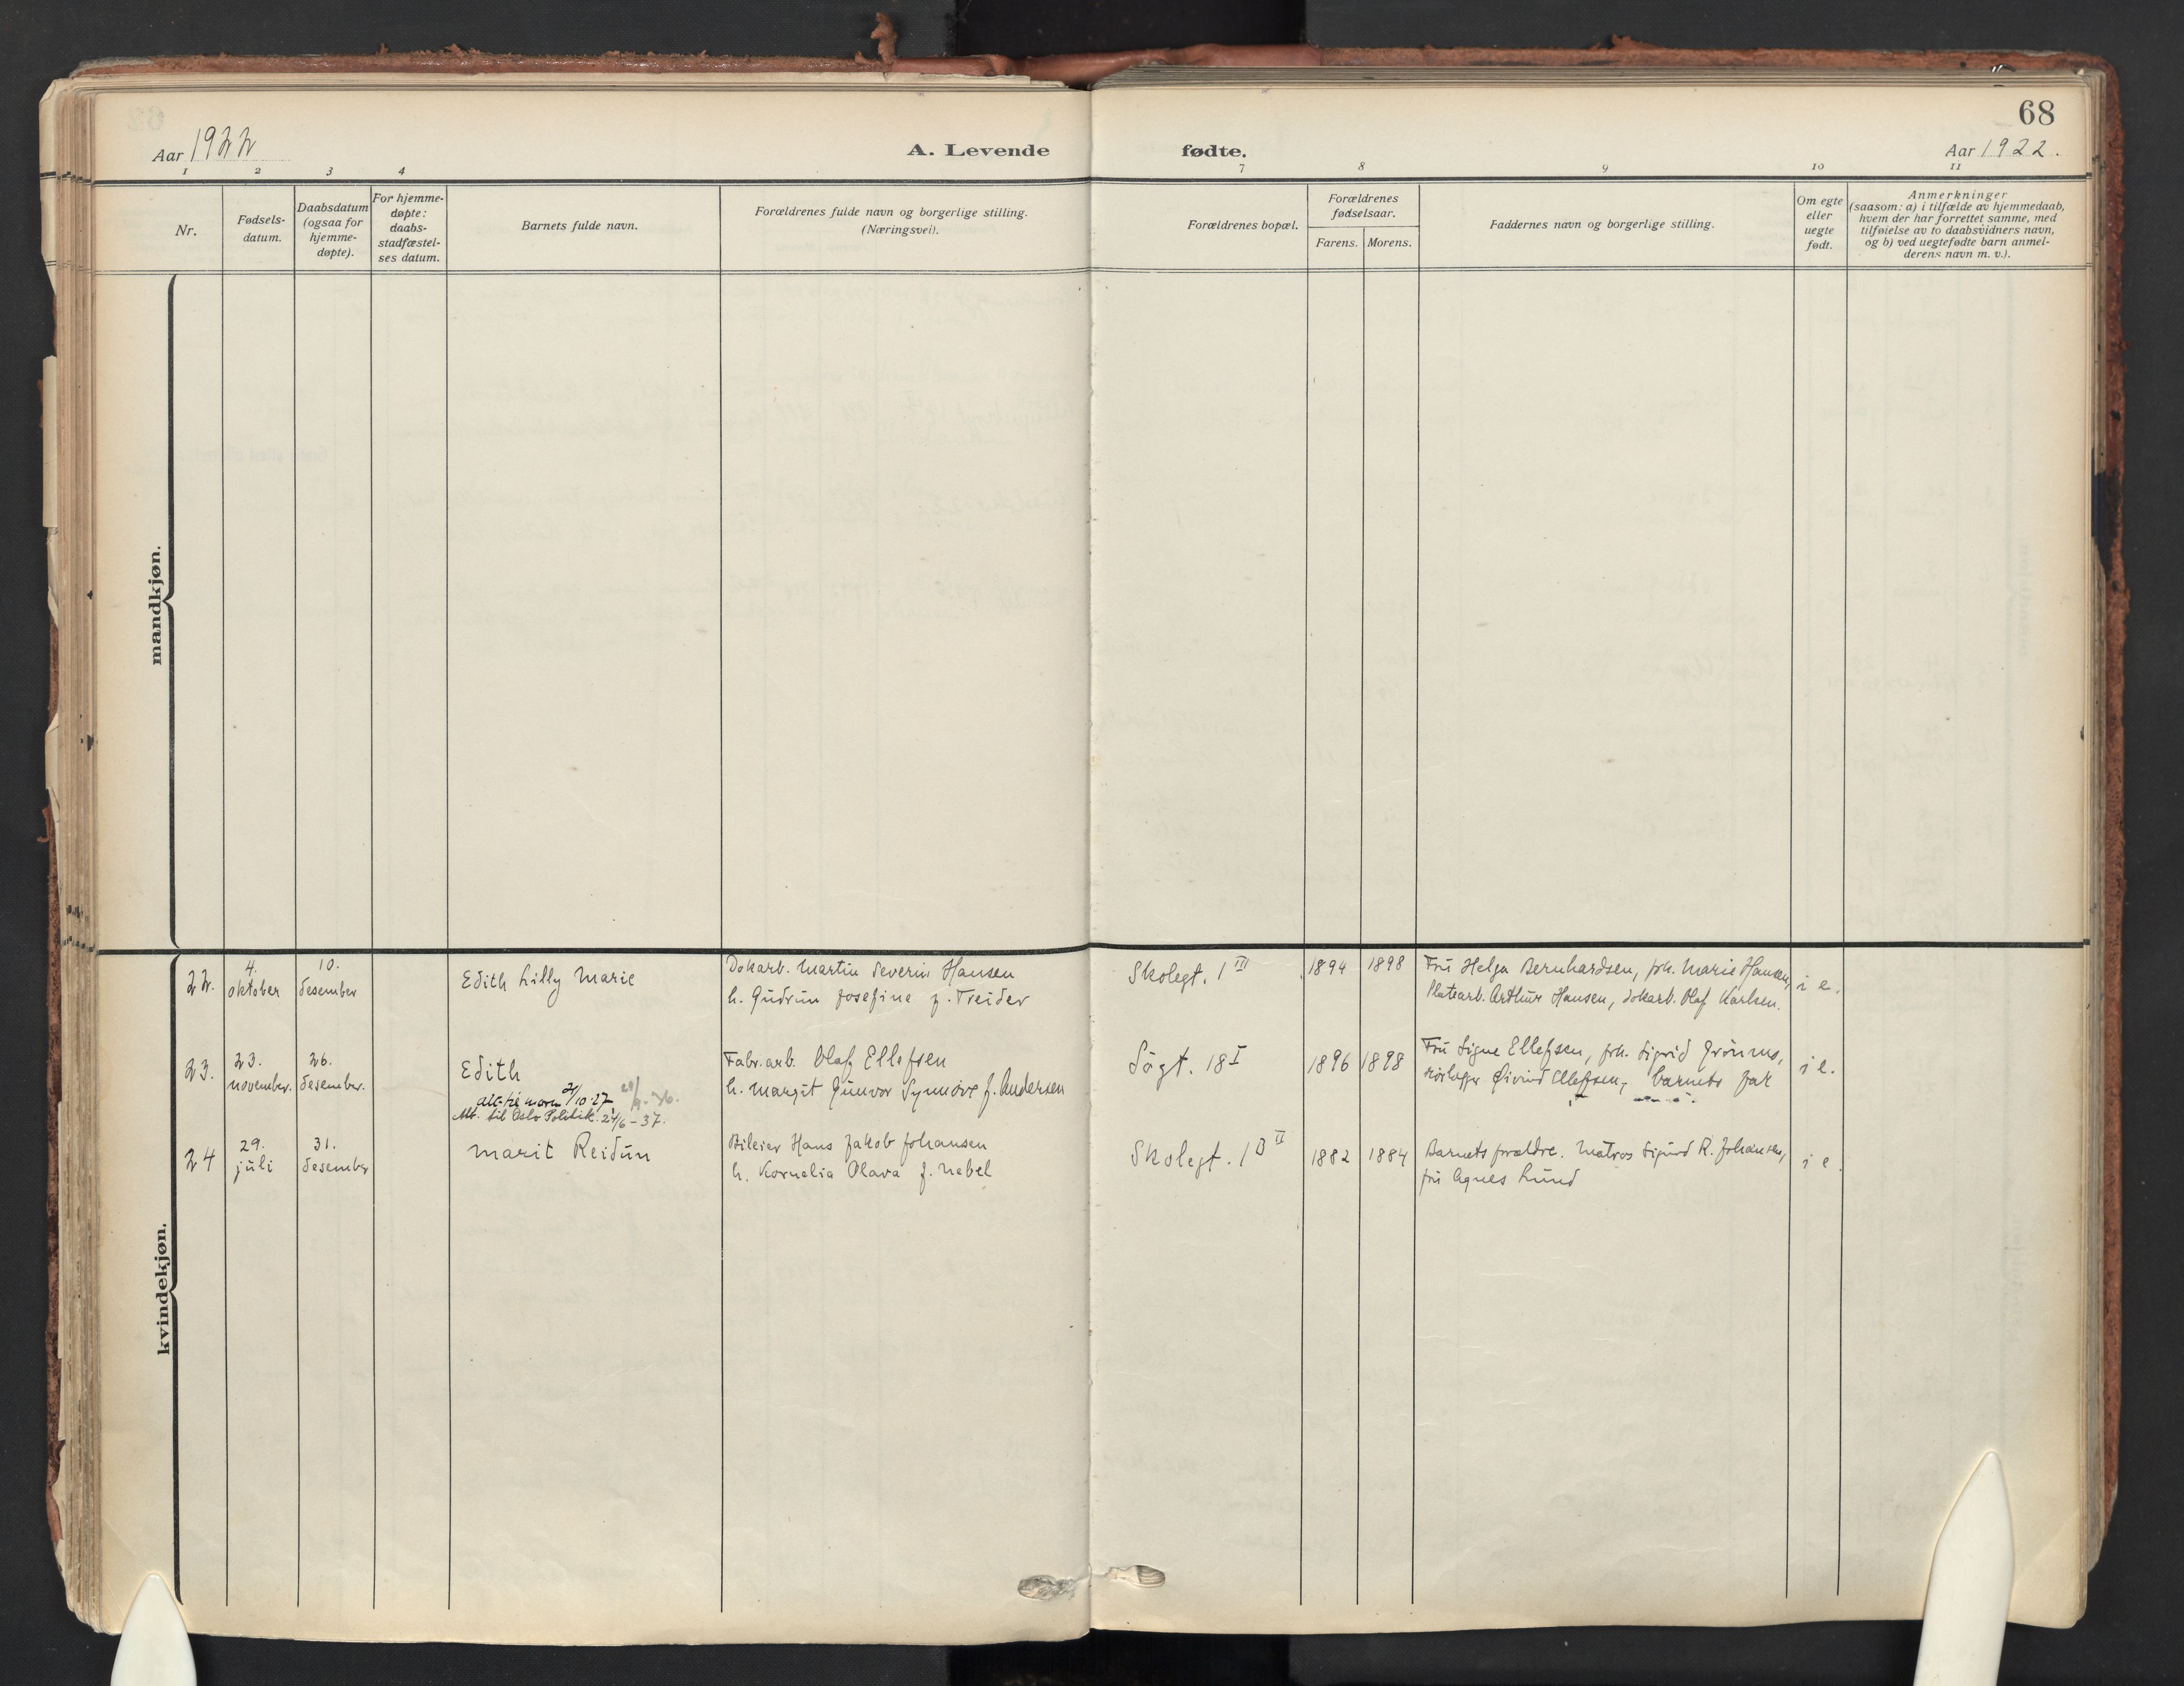 68
Aar 1922
A. Levende fødte.
Aar 1922.
1 2 3 4 7 8 9 10 11
Nr.
Fødsels-
datum.
Daabsdatum
(ogsaa for
hjemme-
døpte).
For hjemme-
døpte:
daabs-
stadfæstel-
ses datum.
Barnets fulde navn.
Forældrenes fulde navn og borgerlige stilling.
(Næringsvei).
Forældrenes bopæl.
Forældrenes
fødselsaar.
Farens. Morens.
Faddernes navn og borgerlige stilling.
Om egte
eller
uegte
født.
Anmerkninger
(saasom: a) i tilfælde av hjemmedaab,
hvem der har forrettet samme, med
tilføielse av to daabsvidners navn,
og b) ved uegtefødte barn anmel-
derens navn m. v.).
mandkjøn.
kvindekjøn.
22.
4.
oktober
10.
desember
Edith Lilly Marie
Dokarb. Martin Severin Hansen
h. Gudrun Josefine f. Treider
Skolegt. 1 III
1894 1898
Fru Helga Bernhardsen, frk. Marie Hansen,
Platearb. Arthur Hansen, dokarb. Olaf Karlsen.
i e.
23.
23.
november.
26.
desember.
Edith
att. til moren 21/10-27
Att. til Oslo Politik. 24/6-37.
Fabr.arb. Olaf Ellefsen
h. Margit Gunvor Synnöve f. Andersen
Sögt. 18 I
1896 1898
Fru Signe Ellefsen, frk. Sigrid Grönnes,
Øivind Ellefsen, barnets far
i e.
24
29.
juli
31.
desember
Marit Reidun
Bileier Hans Jakob Johansen
h. Kornelia Olava f. Nebel
Skolegt. 1 B II
1882 1884
Barnets forældre. Matros Sigurd R. Johansen,
fru Agnes Lund
i e.